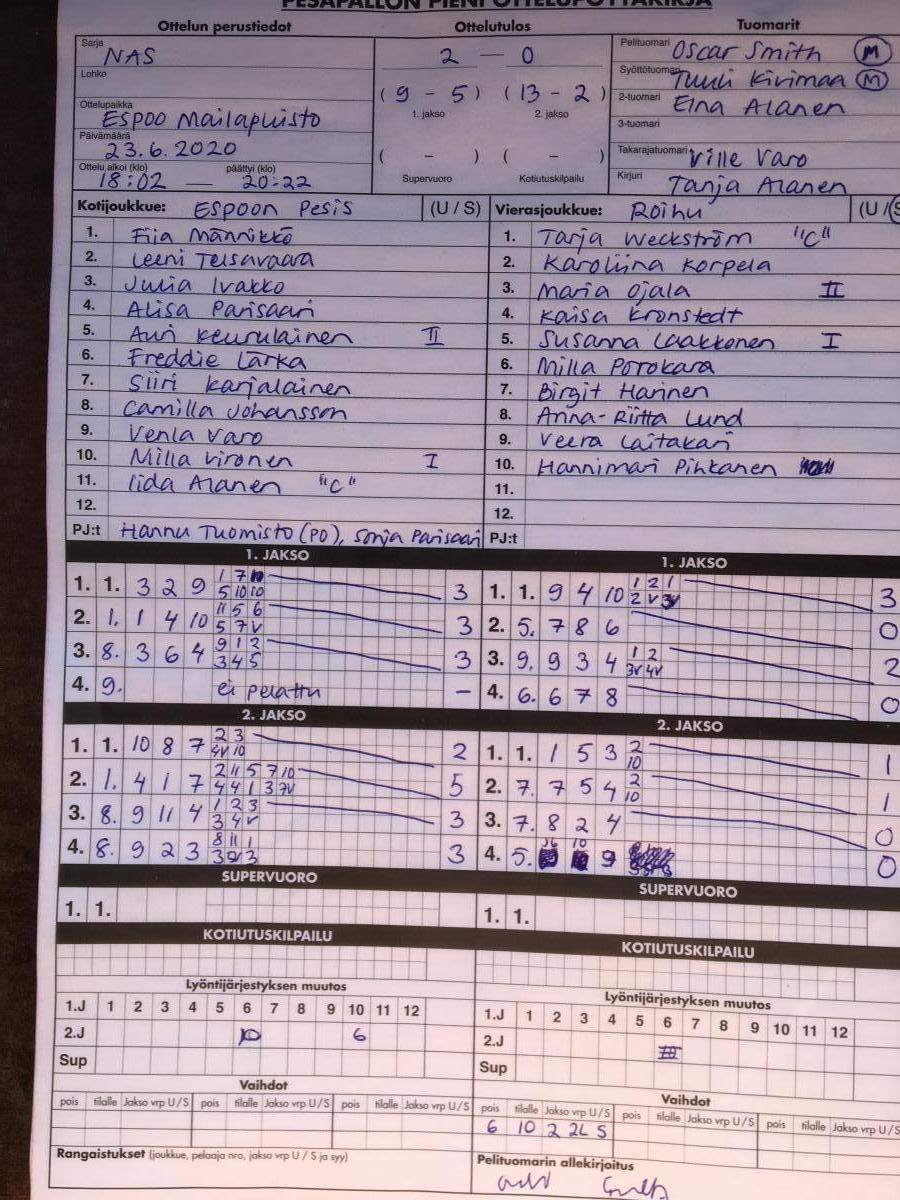 PESÄPALLON PIENI OTTELUPÖYTÄKIRJA
Ottelun perustiedot
Sarja NAS
Lohko
Ottelupaikka ESPOO Mailapuisto
Päivämäärä 23.6.2020
Ottelu alkoi (klo) 18:02 — päättyi (klo) 20:22
Ottelutulos
2 — 0
(9 - 5) (13 - 2)
1. jakso 2. jakso
( - ) ( - )
Supervuoro Kotiutuskilpailu
Tuomarit
Pelituomari Oscar Smith M
Syöttötuomari Tuuli Kivimaa M
2-tuomari Eina Alanen
3-tuomari
Takarajatuomari Ville Varo
Kirjuri Tanja Alanen
Kotijoukkue: ESPOON Pesis (U / S)
1. Eija Männikkö
2. Leeni Teisavaara
3. Julia Ivakko
4. Alisa Parisaari
5. Auri Keurulainen II
6. Freddie Lärka
7. Siiri Karjalainen
8. Camilla Johansson
9. Venla Varo
10. Milla Vironen I
11. Iida Alanen "C"
12.
PJ:t Hannu Tuomisto (PO), Sonja Parisaari
Vierasjoukkue: Roihu (U / S
1. Tarja Weckström "C"
2. Karoliina Korpela
3. Maria Ojala II
4. Kaisa Kronstedt
5. Susanna Laakkonen I
6. Milla Porokara
7. Birgit Harinen
8. Anna-Riitta Lund
9. Veera Laitakari
10. Hannimari Pihkanen
11.
12.
PJ:t
1. JAKSO
1. 1. 3 2 9 3
2. 1. 1 4 10 11 5 6 5 7 V 3
3. 8. 3 6 4 9 1 2 3 4 5 3
4. 9. ei pelattu -
2. JAKSO
1. 1. 10 8 7 2 3 4V 10 2
2. 1. 4 1 7 2 11 5 7 10 4 4 1 3 7V 5
3. 8. 9 11 4 1 2 3 3 4 V 3
4. 8. 9 2 3 8 11 1 3
SUPERVUORO
1. 1.
KOTIUTUSKILPAILU
Lyöntijärjestyksen muutos
1.J 1 2 3 4 5 6 7 8 9 10 11 12
2.J 10 6
Sup
Vaihdot
pois tilalle Jakso vrp U / S pois tilalle Jakso vrp U / S pois tilalle Jakso vrp U / S
Rangaistukset (joukkue, pelaaja nro, jakso vrp U / S ja syy)
1. JAKSO
1. 1. 9 4 10 1 2 1 2 V 3
2. 5. 7 8 6 0
3. 9. 9 3 4 1 2 3V 4V 2
4. 6. 6 7 8 0
2. JAKSO
1. 1. 1 5 3 2 10 1
2. 7. 7 5 4 2 10 1
3. 7. 8 2 4 0
4. 5. 9 0
SUPERVUORO
1. 1.
KOTIUTUSKILPAILU
Lyöntijärjestyksen muutos
1.J 1 2 3 4 5 6 7 8 9 10 11 12
2.J
Sup
Vaihdot
pois tilalle Jakso vrp U / S pois tilalle Jakso vrp U / S pois tilalle Jakso vrp U / S
6 10 2 2L S
Pelituomarin allekirjoitus